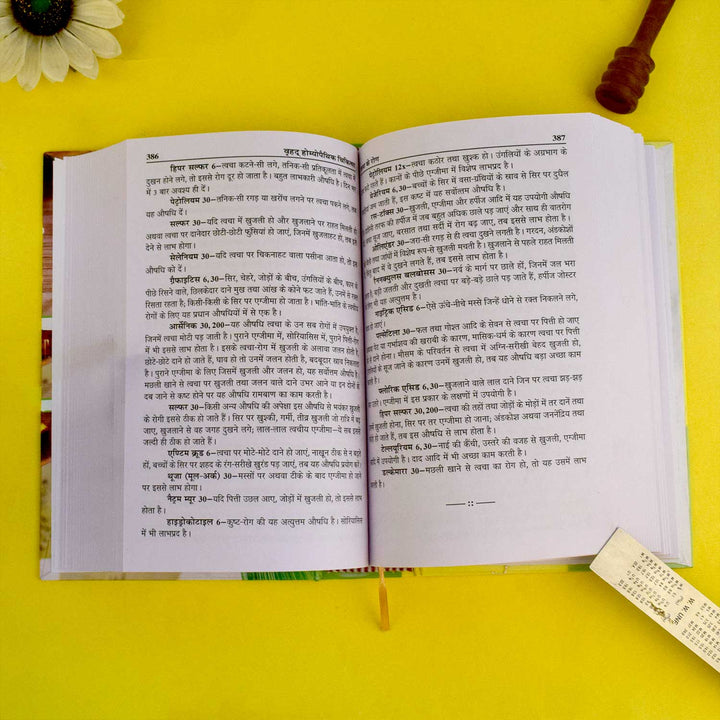 386 वृहद् होम्योपैथिक चिकित्सा
हिपर सल्फर 6–त्वचा कटने-सी लगे, तनिक-सी प्रतिकूलता में त्वचा में
दुखन होने लगे, तो इससे रोग दूर हो जाता है। बहुत लाभकारी औषधि है। दिन भर
में 3 बार अवश्य ही दें।
पेट्रोलियम 30–तनिक-सी रगड़ या खरोंच लगने पर त्वचा पकने लगे,
यह औषधि दें।
सल्फर 30–यदि त्वचा में खुजली हो और खुजलाने पर राहत मिलती हो
अथवा त्वचा पर दानेदार छोटी-छोटी फुंसियां हो जाएं, जिनमें खुजलाहट हो, तब इसे
देने से लाभ होगा।
सेलेनियम 30–यदि त्वचा पर चिकनाहट वाला पसीना आता हो, तो इस
औषधि को दें।
ग्रैफाइटिस 6,30–सिर, चेहरे, जोड़ों के बीच, उंगलियों के बीच, कान
के पीछे रिसने वाले, छिलकेदार दाने मुख तथा आंख के कोने फट जाते हैं, उनमें से रक्त
रिसता रहता है, किसी-किसी के सिर पर एग्जीमा हो जाता है। भांति-भांति के त्वचा
रोगों के लिए यह प्रधान औषधियों में से एक है।
आर्सेनिक 30, 200–यह औषधि त्वचा के उन सब रोगों में उपयुक्त है,
जिनमें त्वचा मोटी पड़ जाती है। पुराने एग्जीमा में, सोरियासिस में, पुराने पित्ती-रोग
में भी इससे लाभ होता है। इसके त्वचा-रोग में खुजली के अलावा जलन होती है,
छोटे-छोटे दाने हो जाते हैं, घाव हो तो उनमें जलन होती है, बदबूदार खाव निकलता
है। पुराने एग्जीमा के लिए जिसमें खुजली और जलन हो, यह सर्वोत्तम औषधि है।
मछली खाने से त्वचा पर खुजली तथा जलन वाले दाने उभर आने या इन दोनों के
दब जाने से कष्ट होने पर यह औषधि रामबाण का काम करती है।
सल्फर 30–किसी अन्य औषधि की अपेक्षा इस औषधि से भयंकर खुजली
के रोगी इससे ठीक हो जाते हैं। सिर पर खुश्की, गर्मी, तीव्र खुजली जो रात्रि में बढ़
जाए, खुजलाने से वह जगह दुखने लगे; लाल-लाल त्वचीय एग्जीमा–ये सब इससे
जल्दी ही ठीक हो जाते हैं।
एण्टिम क्रूड 6–त्वचा पर मोटे-मोटे दाने हो जाएं, नाखून ठीक से न बढ़ते
हों, बच्चों के सिर पर शहद के रंग-सरीखे खुरंड पड़ जाएं, तब यह औषधि प्रयोग करें।
थूजा (मूल-अर्क) 30–मस्सों पर अथवा टीके के बाद एग्जीमा हो जाने
पर इससे लाभ होगा।
नैट्रम म्यूर 30–यदि पित्ती उछल आए, जोड़ों में खुजली हो, तो इससे लाभ
होता है।
हाइड्रोकोटाइल 6–कुष्ट-रोग की यह अत्युत्तम औषधि है। सोरियासिस
में भी लाभप्रद है।
के रोग 387
पेट्रोलियम 12x–त्वचा कठोर तथा खुश्क हो। उंगलियों के अग्रभाग के
जाते हैं। कानों के पीछे एग्जीमा में विशेष लाभप्रद है।
6,30–बच्चों के सिर में वसा-ग्रंथियों के खाव से सिर पर दूधिल
जम जाती हैं, इस कष्ट में यह सर्वोत्तम औषधि है।
रस-टॉक्स 30–खुजली, एग्जीमा और हर्पीज आदि में यह उपयोगी औषधि
तरफ की हर्पीज में जब बहुत अधिक छाले पड़ जाएं और साथ ही वातरोग
जाए, बरसात तथा सर्दी में रोग बढ़ जाए, तब इससे लाभ होता है।
ओलिएंडर 30–जरा-सी रगड़ से ही त्वचा दुखने लगती है। गरदन, अंडकोशों
में विशेष रूप-से खुजली मचती है। खुजलाने से पहले राहत मिलती
बाद में वे दुखने लगते हैं, तब इससे लाभ होता है।
रैननक्युलस बलबोसस 30–नर्व के मार्ग पर छाले हों, जिनमें जल भरा
बड़ी जलती और दुखती त्वचा पर बड़े-बड़े छाले पड़ जाते हैं, हर्पीज जोस्टर
में यह अत्युत्तम है।
नाइट्रिक एसिड 6–ऐसे ऊंचे-नीचे मस्से जिन्हें धोने से रक्त निकलने लगे,
जाएं।
पल्सेटिला 30–फल तथा गोश्त आदि के सेवन से त्वचा पर पित्ती हो जाए
पेट या गर्भाशय की खराबी के कारण, मासिक-धर्म के कारण त्वचा पर पित्ती
के दाने होना। मौसम के परिवर्तन से त्वचा में अग्नि-सरीखी बेहद खुजली हो,
के सूज जाने के कारण उनमें खुजली हो, तब यह औषधि बड़ा अच्छा काम
है।
फ्लोरिक एसिड 6,30–खुजलाने वाले लाल दाने जिन पर त्वचा झड़-झड़
। एग्जीमा में इस प्रकार के लक्षणों में उपयोगी है।
हिपर सल्फर 30, 200–त्वचा की तहों तथा जोड़ों के मोड़ों में तर दानें तथा
खुजली होना, सिर पर तर दाना हो जाना; अंडकोश अथवा जननेंद्रिय तथा
हो जाते हैं, तब इस औषधि से लाभ होता है।
टेल्यूरियम 6,30–नाई की कैंची, उस्तरे की वजह से खुजली, एग्जीमा
में उपयोगी है। दाद आदि में भी अच्छा काम करती है।
डल्केमारा 30–मछली खाने से त्वचा का रोग हो, तो यह उसमें लाभ
है।
W. W. UNE